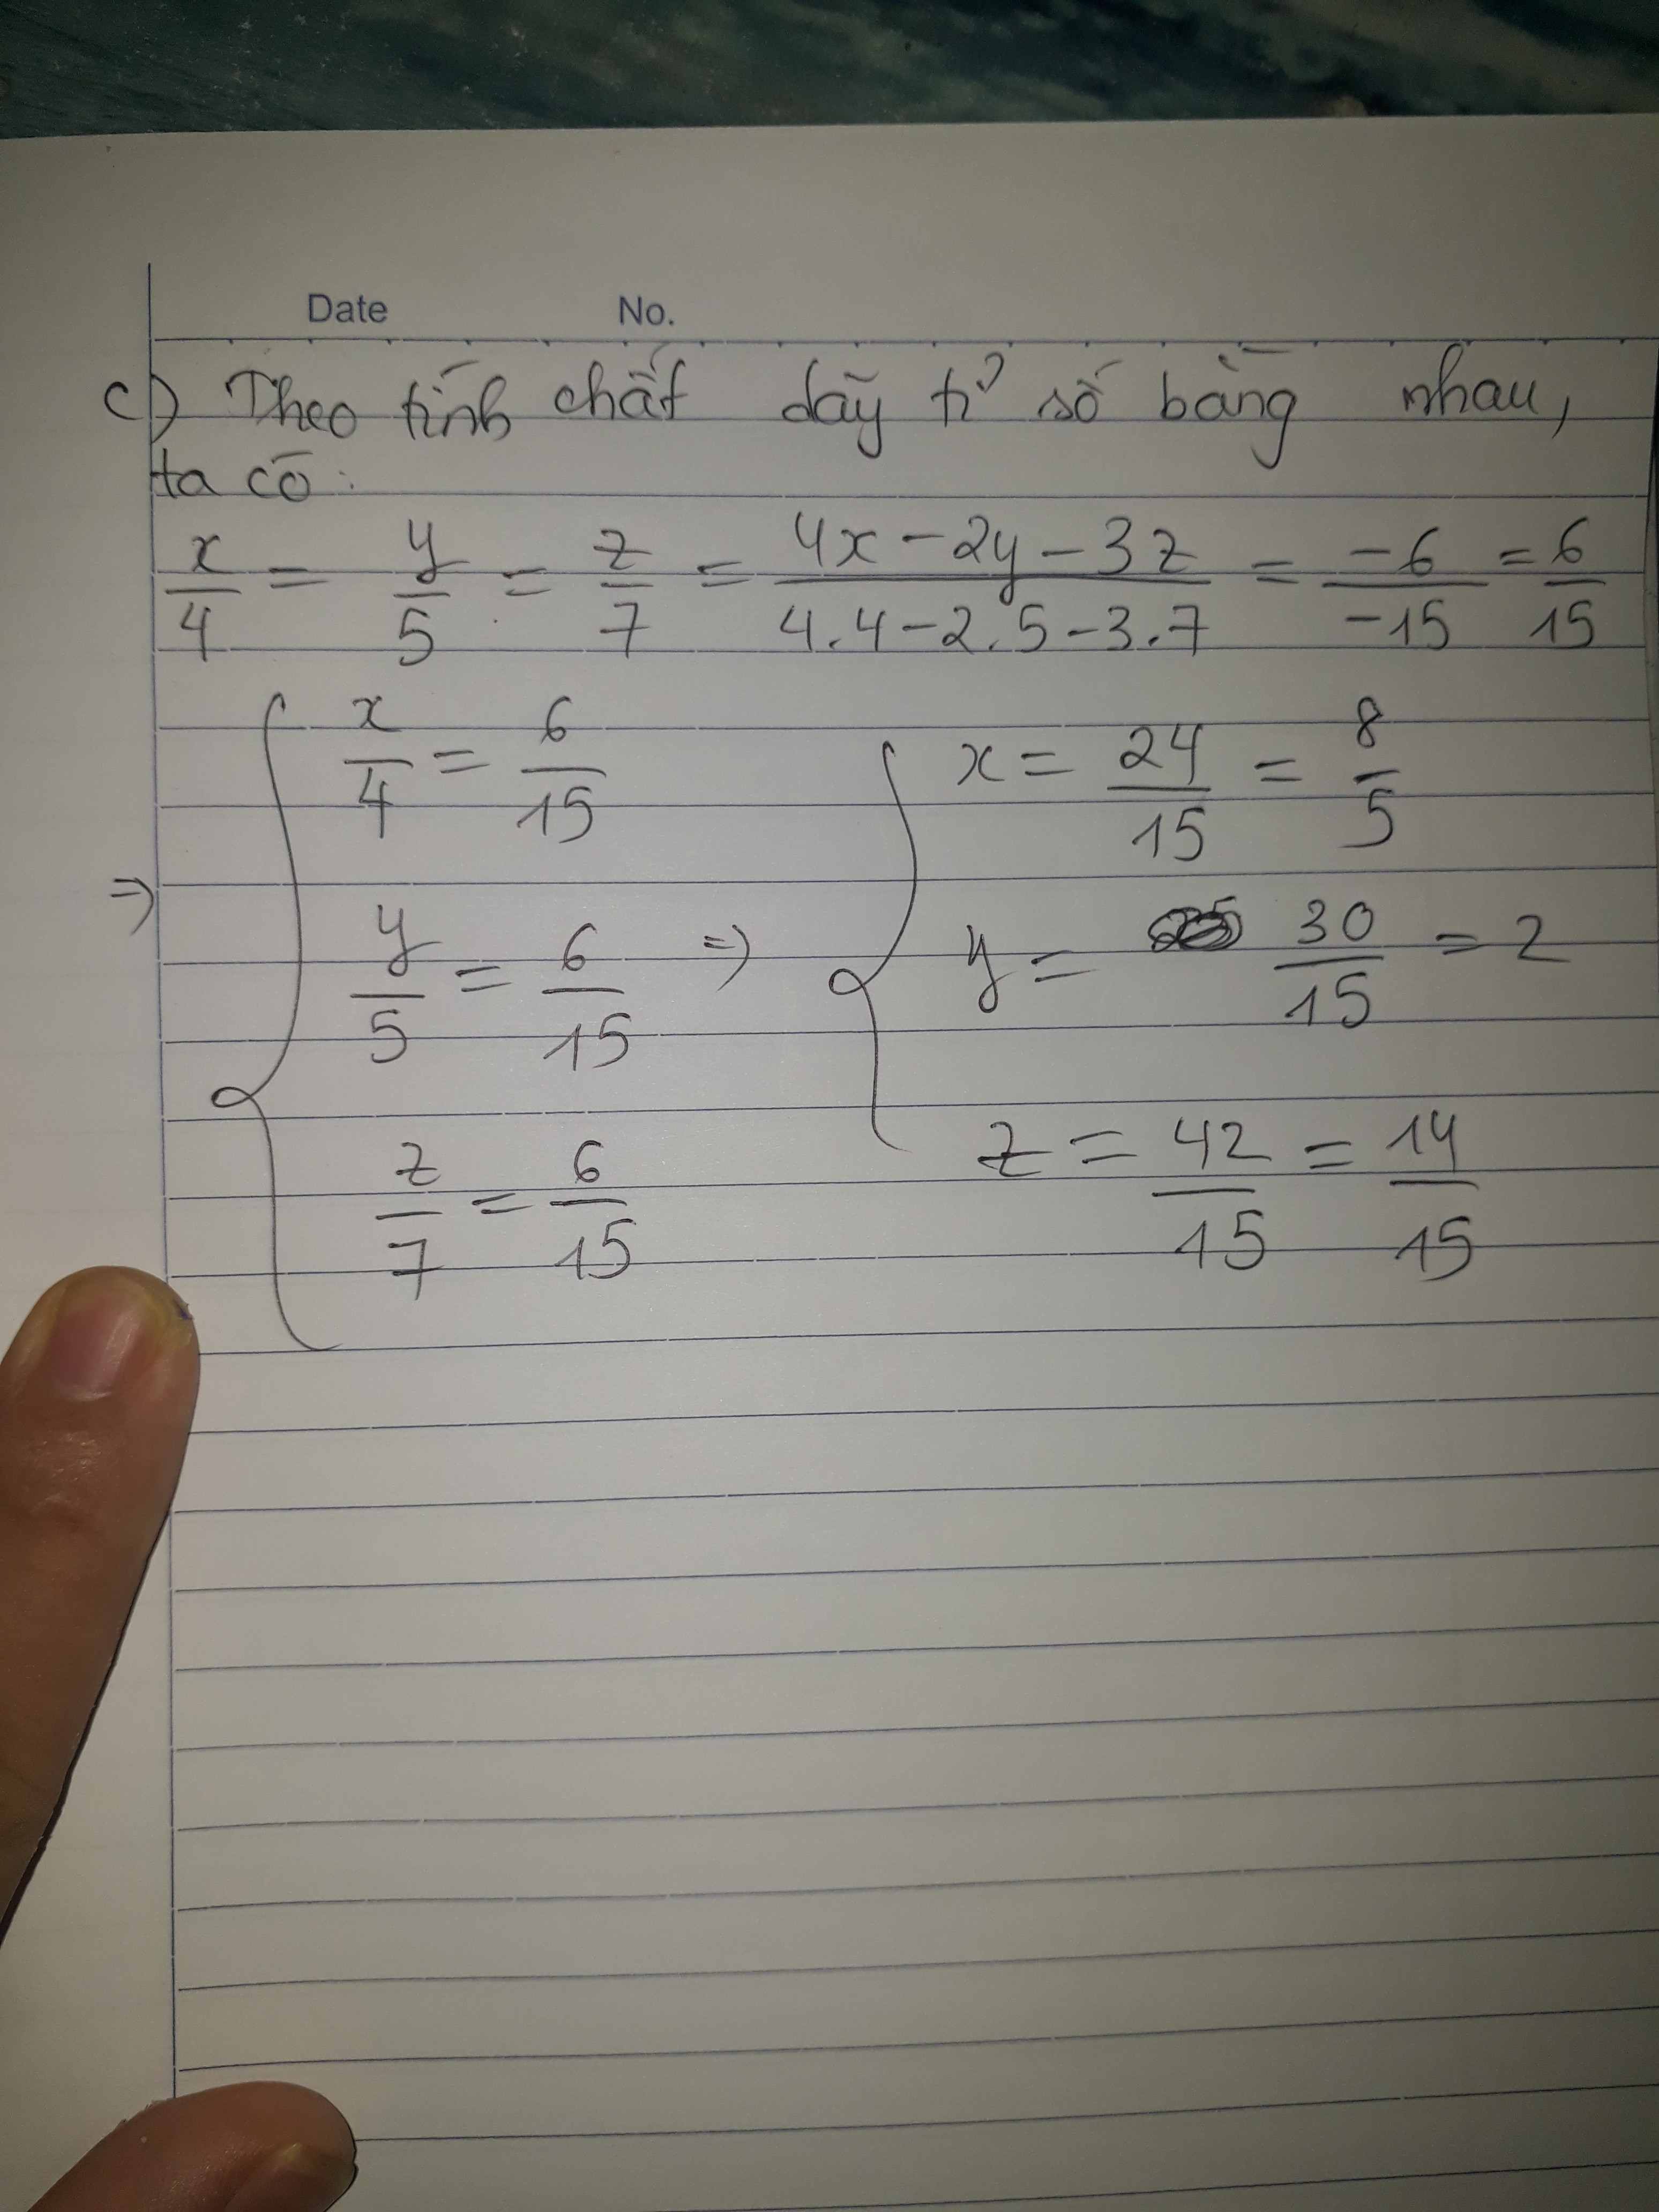 Date No.
c) Theo tính chất dãy tỉ số bằng nhau,
ta có:
x/4 = y/5 = z/7 = (4x - 2y - 3z)/(4.4 - 2.5 - 3.7) = -6/-15 = 6/15
x/4 = 6/15 x = 24/15 = 8/5
=> y/5 = 6/15 => y = 30/15 = 2
z/7 = 6/15 z = 42/15 = 14/15